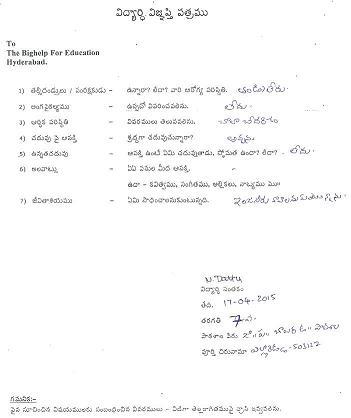 విద్యార్థి విజ్ఞప్తి పత్రము
To
The Bighelp For Education
Hyderabad.
1) తల్లిదండ్రులు / సంరక్షకుడు - ఉన్నారా? లేదా? వారి ఆరోగ్య పరిస్థితి. తండ్రి లేరు
2) అంగవైకల్యము - ఉన్నచో వివరించవలెను. లేదు
3) ఆర్థిక పరిస్థితి - వివరములు తెలుపవలెను.
4) చదువు పై ఆసక్తి - శ్రద్ధగా చదువుచున్నారా? అవును
5) ఉన్నతచదువు - ఆసక్తి ఉంటే ఏమి చదువుతాడు, స్తోమత ఉందా? లేదా? లేదు.
6) అలవాట్లు - ఏఏ పనుల మీద ఆసక్తి.
ఉదా - కవిత్వము, సంగీతము, అల్లికలు, నాట్యము మొ॥
7) జీవితాశయము - ఏమి సాధించాలనుకుంటున్నది.
విద్యార్థి సంతకం
తేది. 17-04-2015
తరగతి 7వ
పాఠశాల పేరు
పూర్తి చిరునామా 503122
గమనిక:-
పైన సూచించిన విషయములకు సంబంధించిన వివరములు - విడిగా తెల్లకాగితముపై వ్రాసి ఇవ్వవలెను.